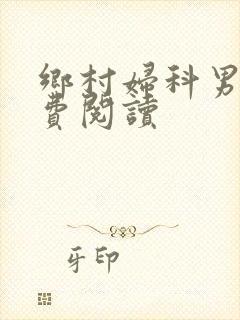 鄉村婦科男
費閱讀
牙印